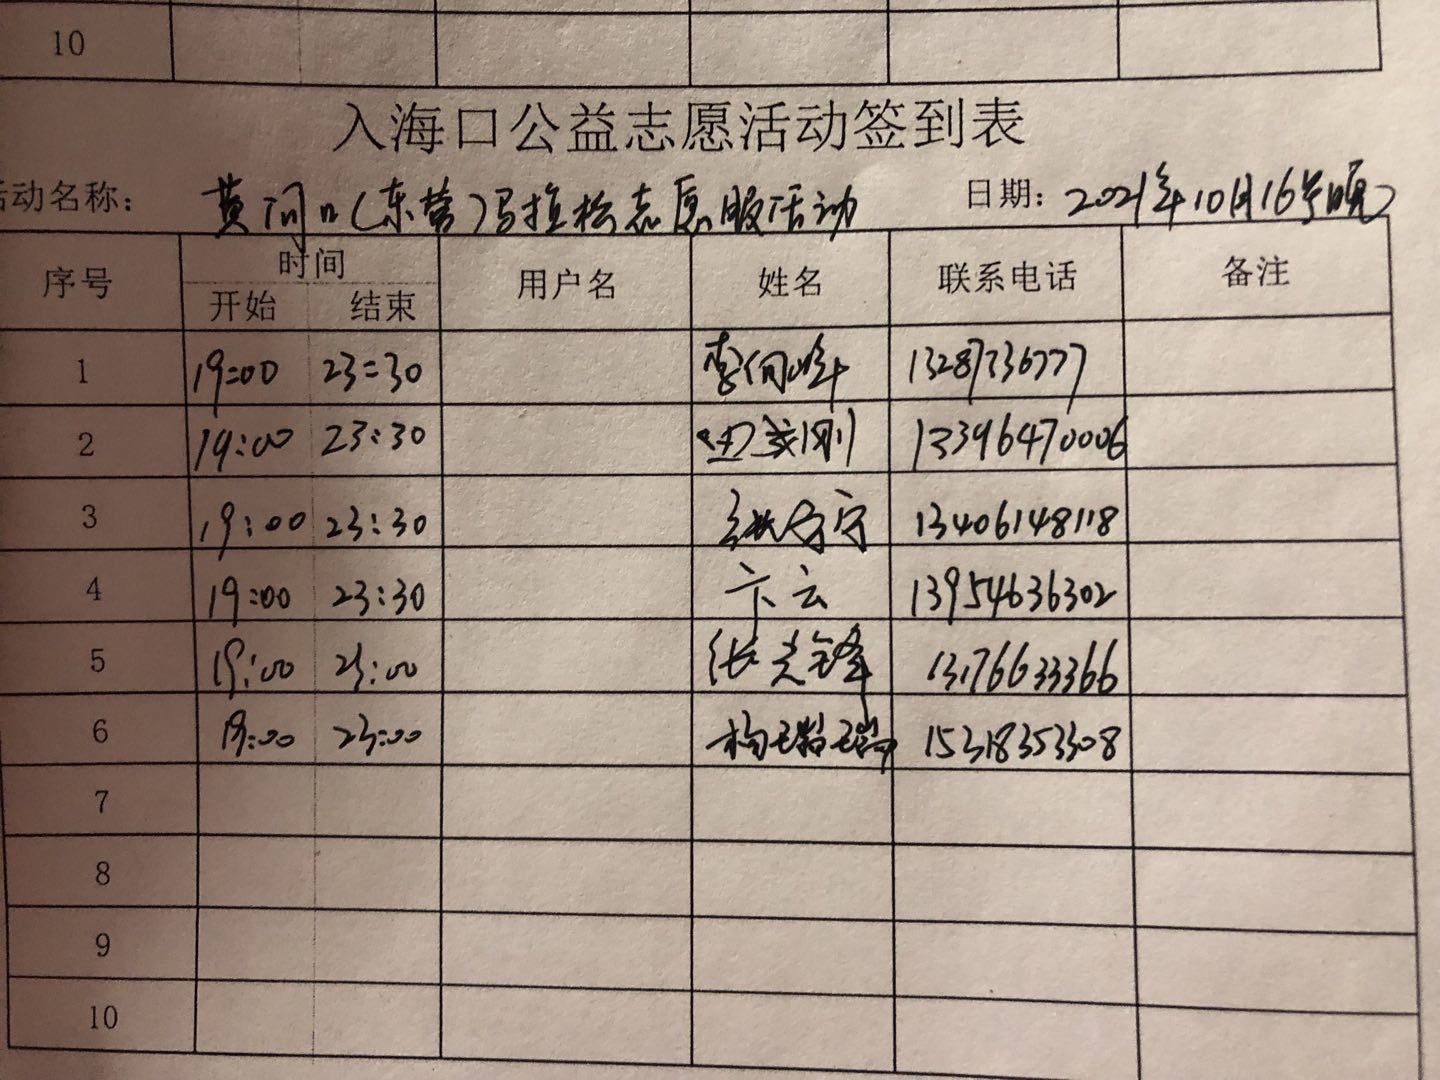 10
入海口公益志愿活动签到表
活动名称: 黄河口(东营)马拉松志愿服活动 日期: 2021年10月16号晚
序号 时间 用户名 姓名 联系电话 备注
开始 结束
1 19:00 23:30 李向峰 13287336777
2 19:00 23:30 13396470006
3 19:00 23:30 13406148118
4 19:00 23:30 卞云 13954636302
5 19:00 23:00 张光锋 13176633366
6 19:00 23:00 15318353308
7
8
9
10